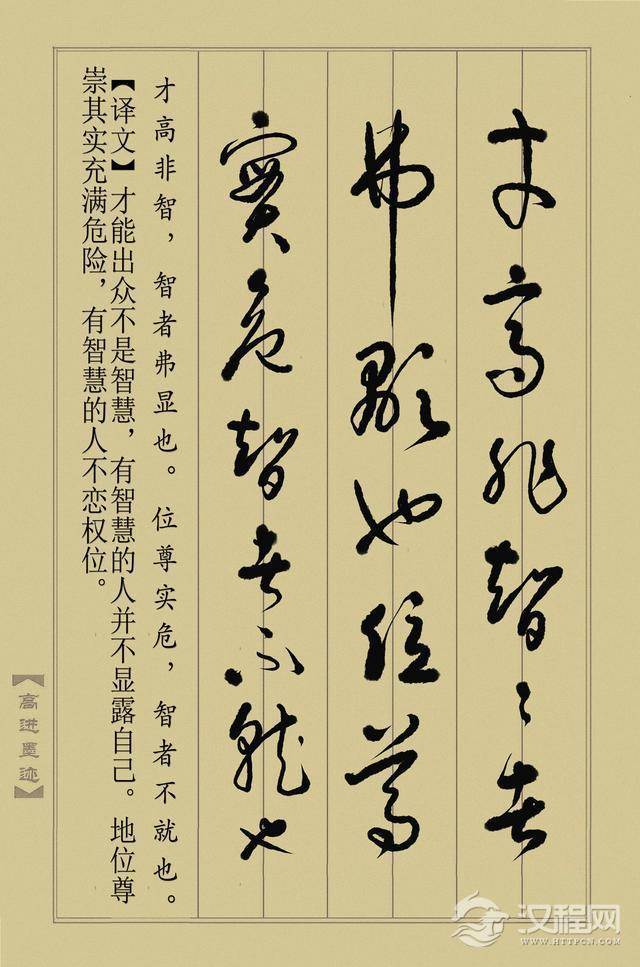 才高非智智者
弗显也位尊
实危智者不就也
才高非智，智者弗显也。位尊实危，智者不就也。
【译文】才能出众不是智慧，有智慧的人并不显露自己。地位尊
崇其实充满危险，有智慧的人不恋权位。
【高进墨迹】
汉程网
WWW.HTTPCN.COM